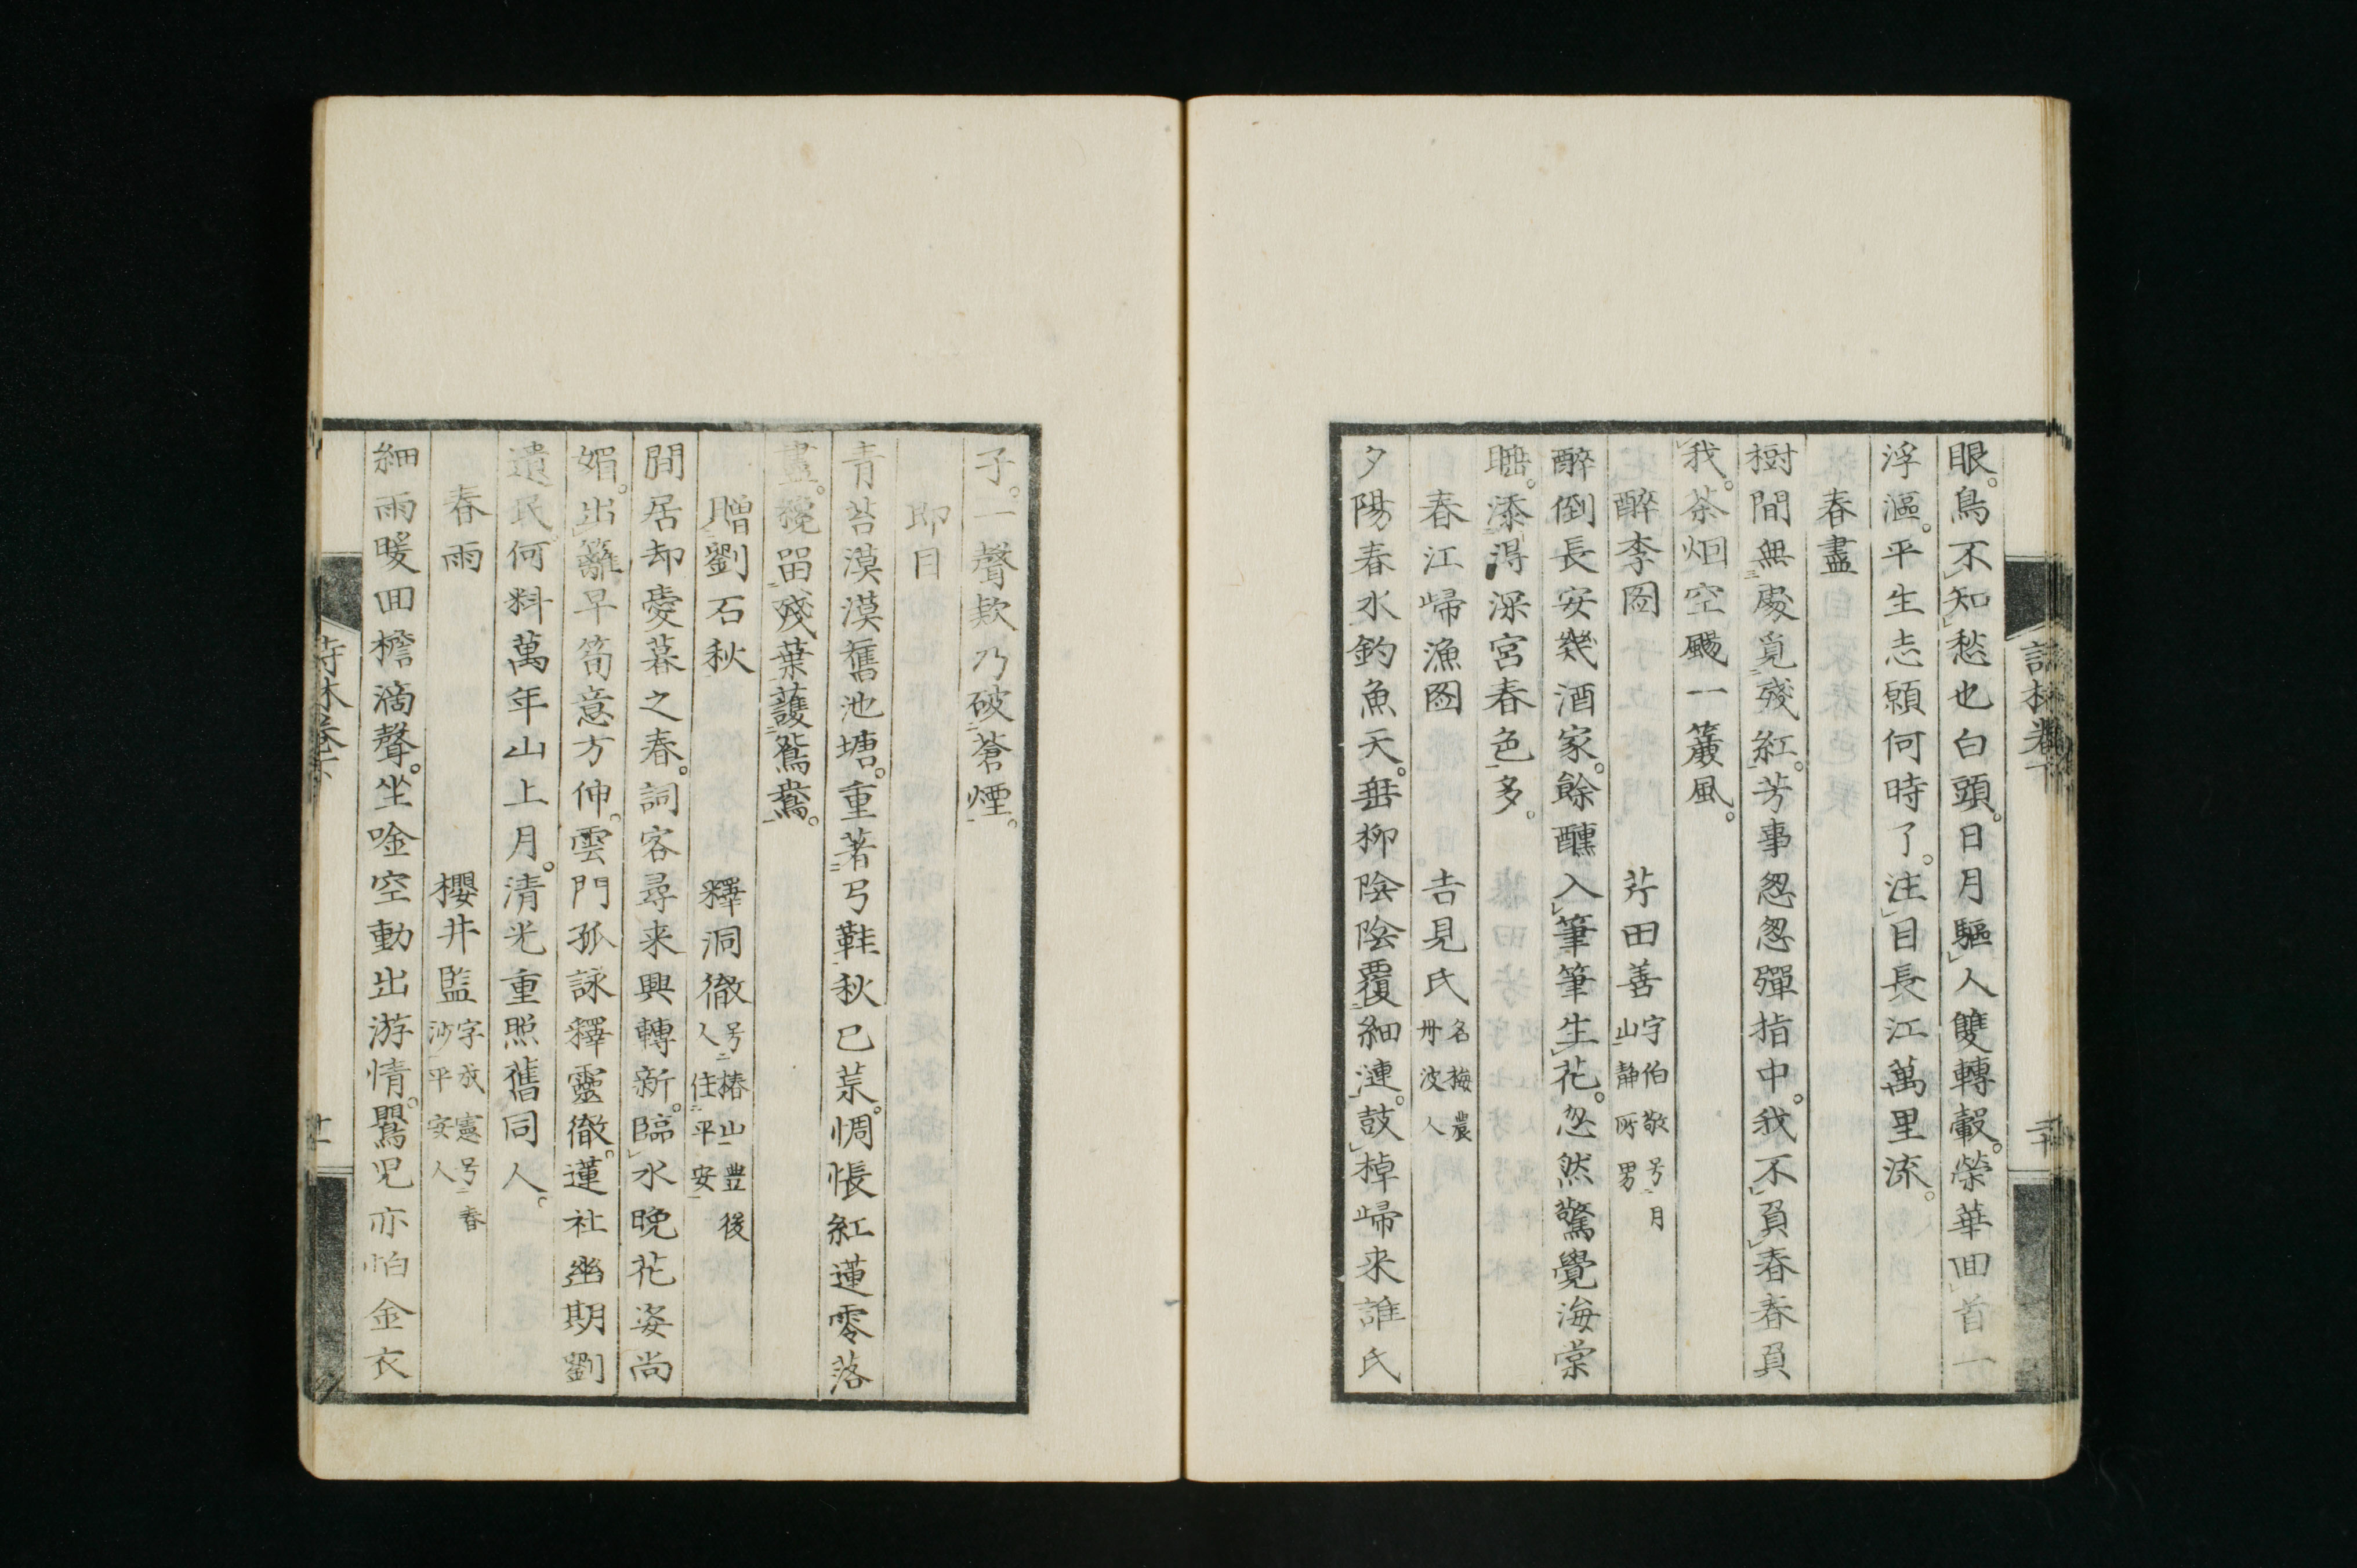 眼。鳥不知愁也白頭。日月驅人雙轉轂。榮華回首一
浮漚。平生志願何時了。注目長江萬里流。
春盡
樹間無處覓殘紅。芳事怱怱彈指中。我不負春春負
我。茶烟空颺一簾風。
醉李図 芹田善 字伯敬号月山静所男
醉倒長安幾酒家。餘醺入筆筆生花。忽然驚覺海棠
睡。添得深宮春色多。
春江歸漁図 吉見氏 名梅農丹波人
夕陽春水釣魚天。垂柳陰陰覆細漣。鼓棹歸来誰氏
子。一聲欸乃破蒼煙。
即目
青苔漠漠舊池塘。重著弓鞋秋已荒。惆悵紅蓮零落
盡。纔留殘葉護鴛鴦。
贈劉石秋 釋洞徹 号椿山豊後人住平安
間居却愛暮之春。詞客尋来興轉新。臨水晩花姿尚
媚。出籬早筍意方伸。雲門孤詠釋靈徹。蓮社幽期劉
遺民。何料萬年山上月。清光重照舊同人。
春雨 櫻井監 字成憲号春沙平安人
細雨暖回檐滴聲。坐唫空動出游情。鸎児亦怕金衣